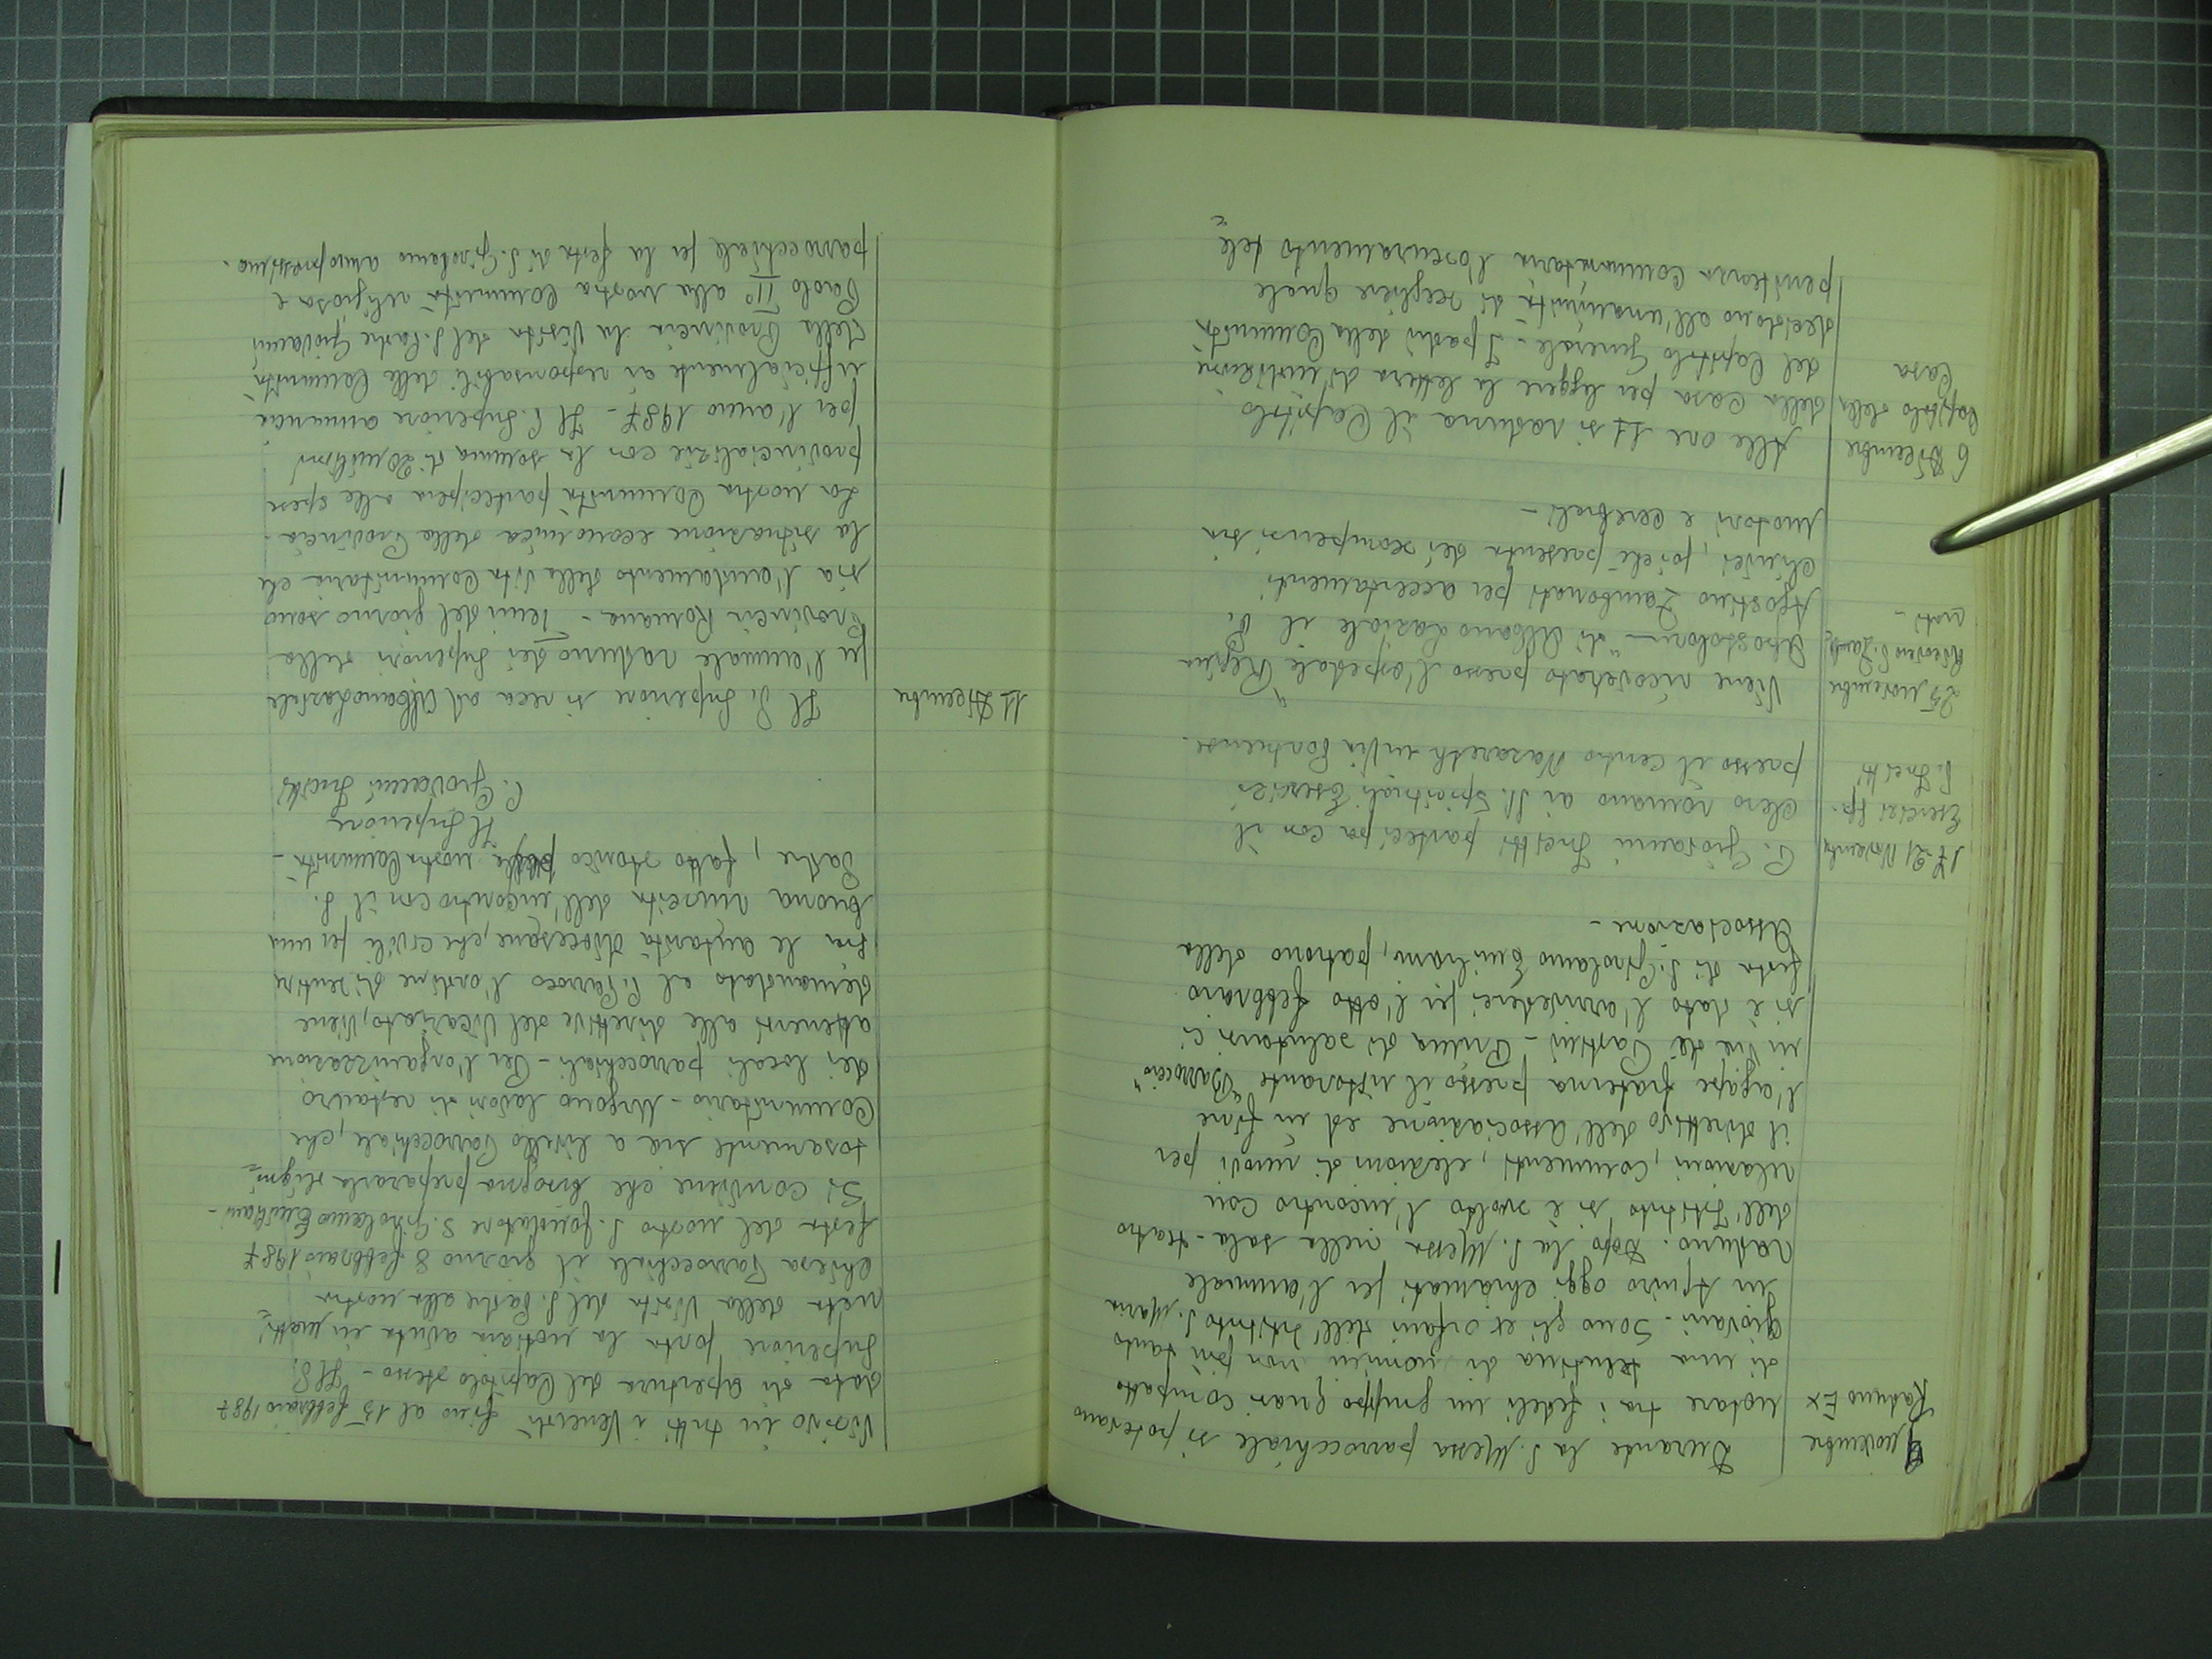 9 novembre
Raduno Ex
Durante la S. Messa parrocchiale si potevano
notare tra i fedeli un gruppo quasi compatto
di una trentina di uomini non più tanto
giovani. Sono gli ex orfani dell'Istituto S. Maria
in Aquiro oggi chiamati per l'annuale
raduno. Dopo la S. Messa nella sala-teatro
dell'Istituto si è svolto l'incontro con
relazioni, commenti, elezioni di nuovi per
il direttivo dell'associazione ed in fine
l'agape fraterna presso il ristorante "Barroccio"
in via dei Pastini - Prima di salutarsi ci
si è dato l'arrivederci per l'otto febbraio
festa di S. Girolamo Emiliani, patrono della
Associazione -
17-21 Novembre
Esercizi sp.
P. Fretti
P. Giovanni Fretti partecipa con il
clero romano ai SS. Spirituali Esercizi
presso il centro Nazareth in Via Portuense.
25 novembre
Ricovero P. Zamb=
onati -
Viene ricoverato presso l'ospedale "Regina
Apostolorum" di Albano Laziale il P.
Agostino Zambonati per accertamenti
clinici, poiché presenta dei scompensi sia
motori e cerebrali -
6 Dicembre
Capitolo della
Casa
Alle ore 11 si raduna il Capitolo
della Casa per leggere la lettera di indizione
del Capitolo Generale - I padri della Comunità
decidono all'unanimità di scegliere quale
penitenza Comunitaria l'oscuramento tele=
visivo in tutti i Venerdì fino al 15 febbraio 1987
data di apertura del Capitolo stesso - Il P.
Superiore porta la notizia avuta in matti=
nata della Visita del S. Padre alla nostra
chiesa Parrocchiale il giorno 8 febbraio 1987
festa del nostro S. fondatore S. Girolamo Emiliani -
Si conviene che bisogna prepararla religio=
samente sia a livello Parrocchiale, che
Comunitario - Urgono lavori di restauro
dei locali parrocchiali - Per l'organizzazione
attenersi alle direttive del Vicariato, viene
demandato al P. Parroco l'ordine di sentire
sia le autorità diocesane, che civili per una
buona riuscita dell'incontro con il S.
Padre, fatto storico nella nostra Comunità -
Il Superiore
P. Giovanni Fretti
11 Dicembre
Il P. Superiore si reca ad Albano Laziale
per l'annuale raduno dei Superiori della
Provincia Romana - Temi del giorno sono
sia l'andamento della Vita Comunitaria che
la situazione economica della Provincia -
La nostra Comunità partecipa alle spese
provincializie con la somma di 20 milioni
per l'anno 1987 - Il P. Superiore annuncia
ufficialmente ai responsabili delle Comunità
della Provincia la Visita del S. Padre Giovanni
Paolo II° alla nostra Comunità religiosa e
parrocchiale per la festa di S. Girolamo anno prossimo.